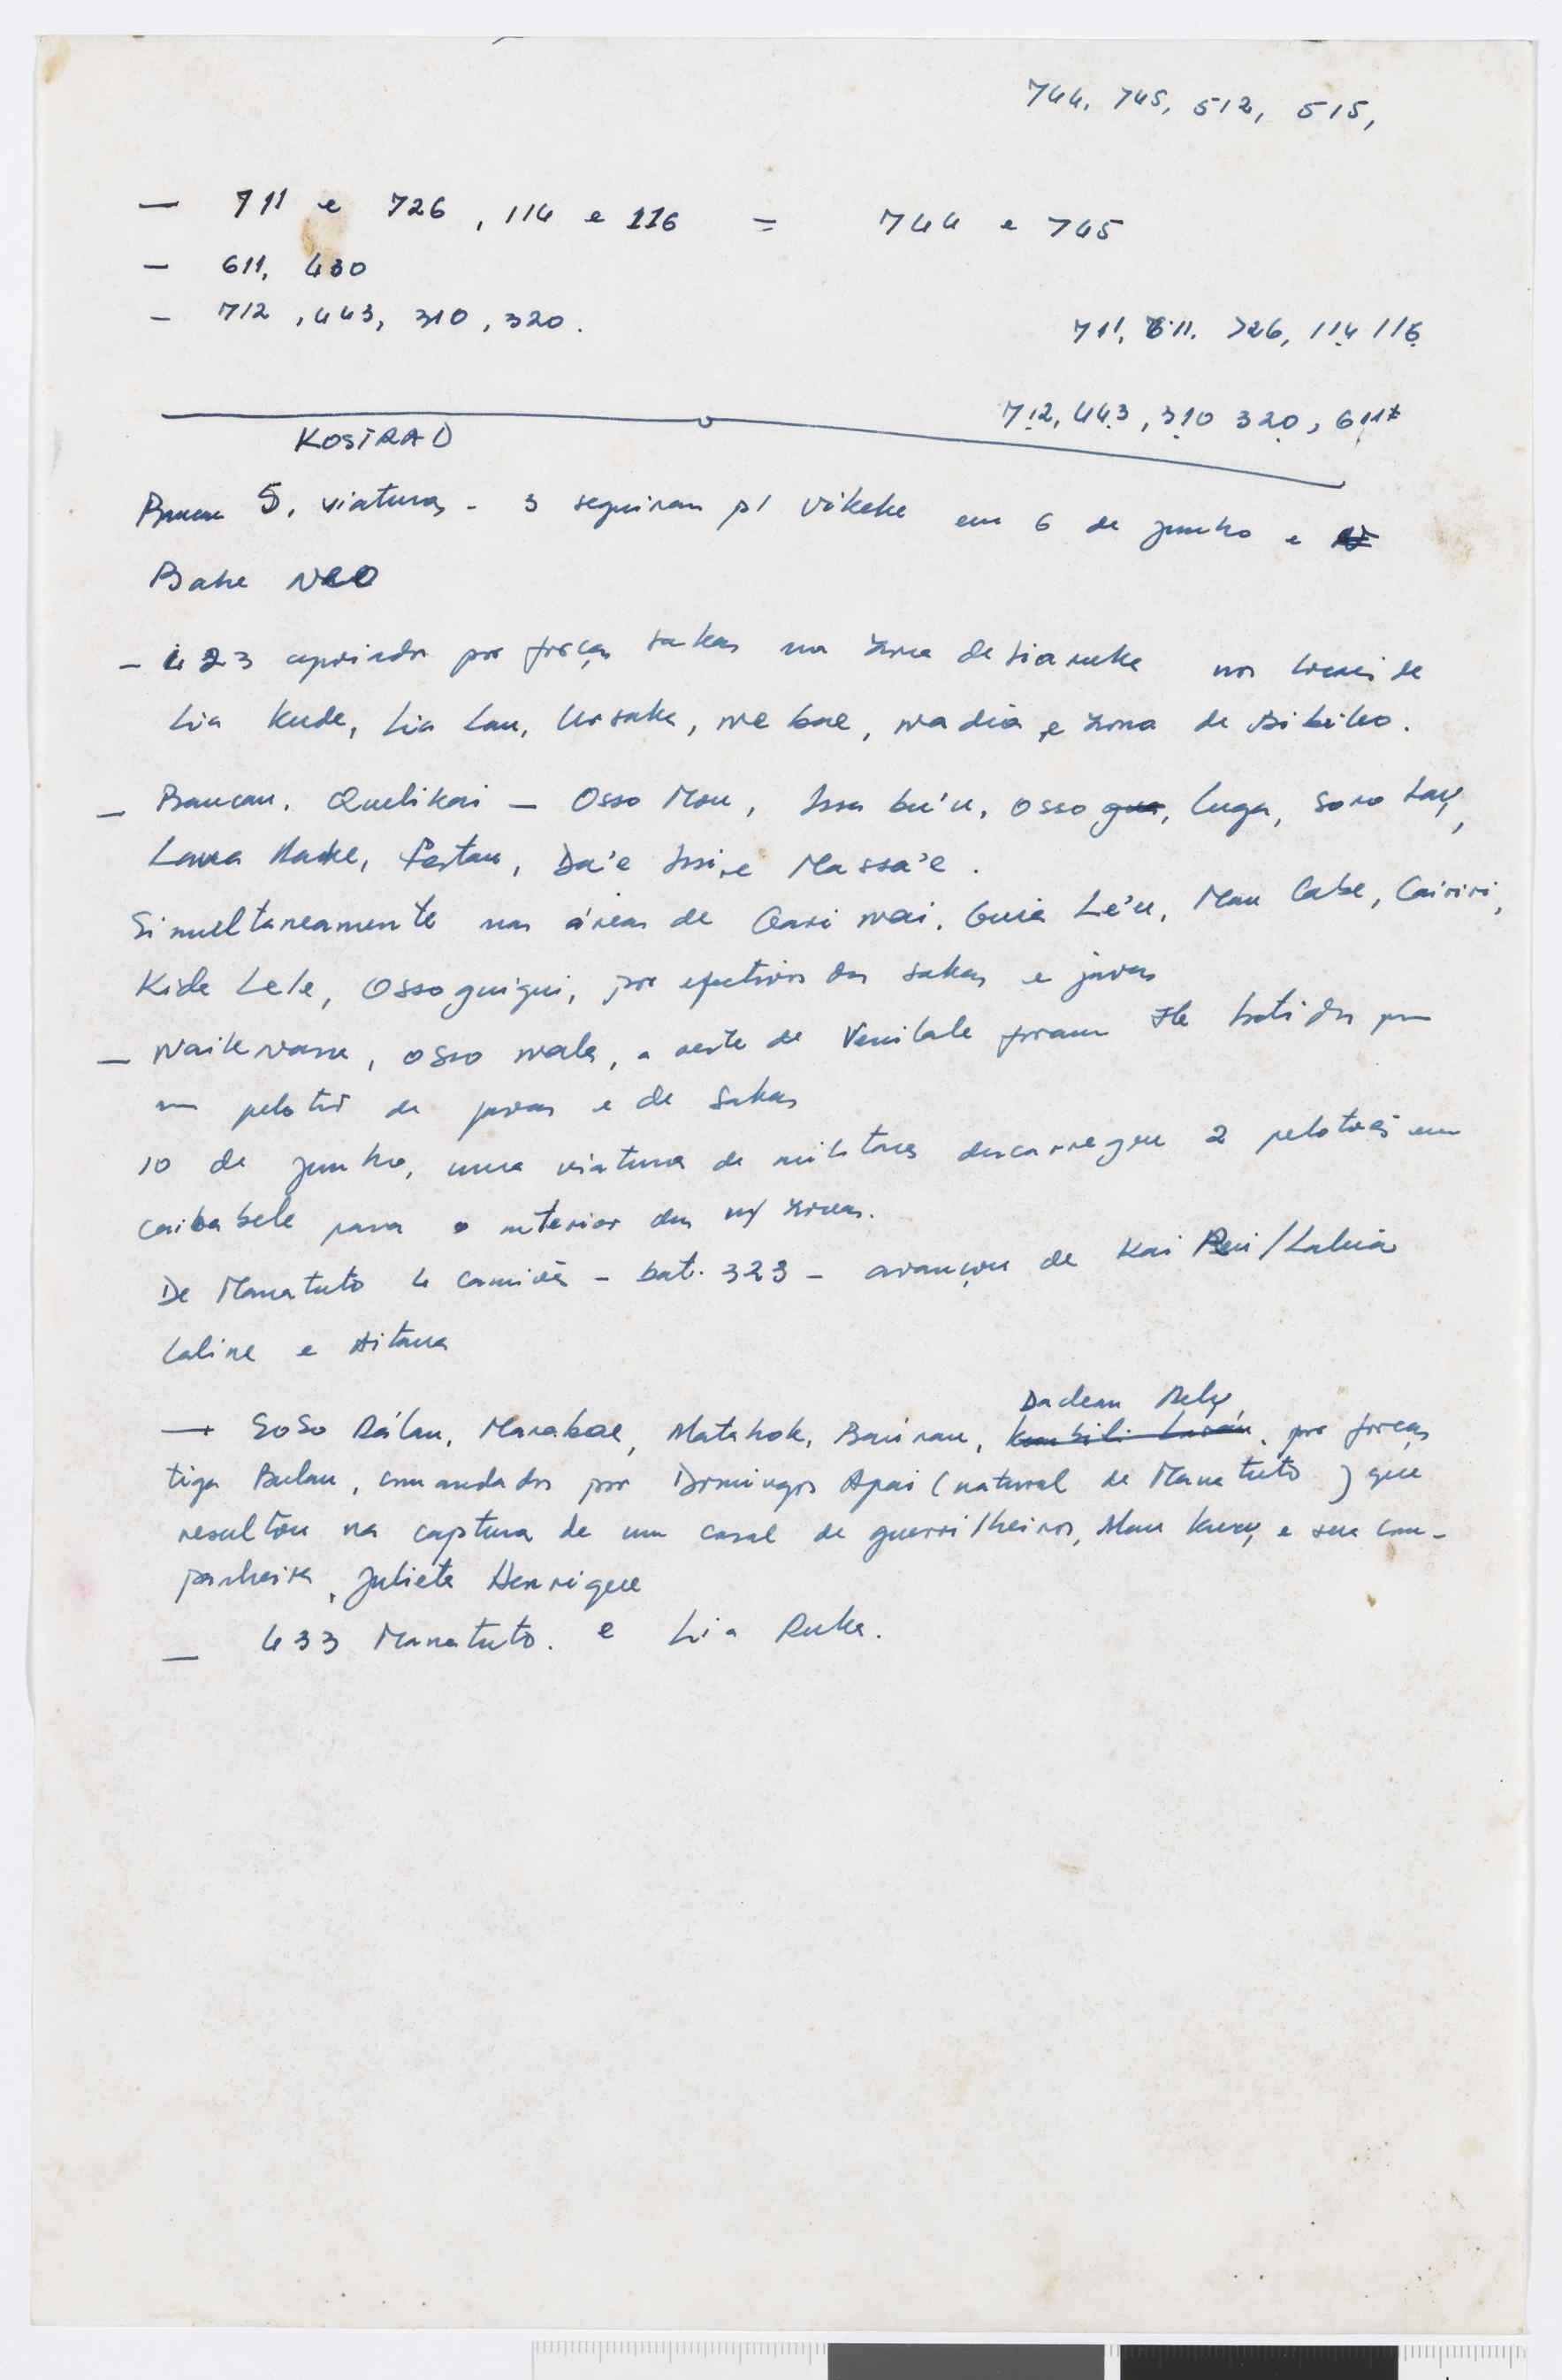 744, 745, 512, 515,
— 711 e 726, 114 e 116 = 744 e 745
— 611, 430
— 712, 443, 310, 320.
711, 611, 726, 114 116
712, 443, 310 320, 611
KOSTRAD
5, viaturas - 3 seguiram p/ Vikeke em 6 de junho e
— 423 apoiado por forças sakas na zona de Lia ruka nos locais de
Lia Kude, Lia Lau, We bae, Wa dia e zona de Bibileo.
— Baucau, Quelikai — Osso Mou, Issa bu'u, Osso gua, Luga, Soro Lay,
Laura Darke, Da'e Issi, e Massa'e.
Simultaneamente nas áreas de Oari wai, Guia Le'u, Mau Cabe, Cairiri,
Kida Lele, Osso guigui, por efectivos dos sakas e javas
— Waike wana, Osso wala, a oeste de Venilale foram tb batidos por
um pelotão de javas e de Sakas
10 de junho, uma viatura de militares descarregou 2 pelotões em
Caibabele para o interior das n/ zonas.
De Manatuto 4 camiões - bat. 323 - avançou de Kai Rui / Laleia
Laline e Aitana
Daclean Rely,
— Soso Rálan, Marabae, Matahok, Baúrau, por forças
tiga Bulan, comandados por Domingos Apai (natural de Manatuto) que
resultou na captura de um casal de guerrilheiros, Mau e sua com-
panheira, Julieta Henrique
— 433 Manatuto. e Lia Ruka.